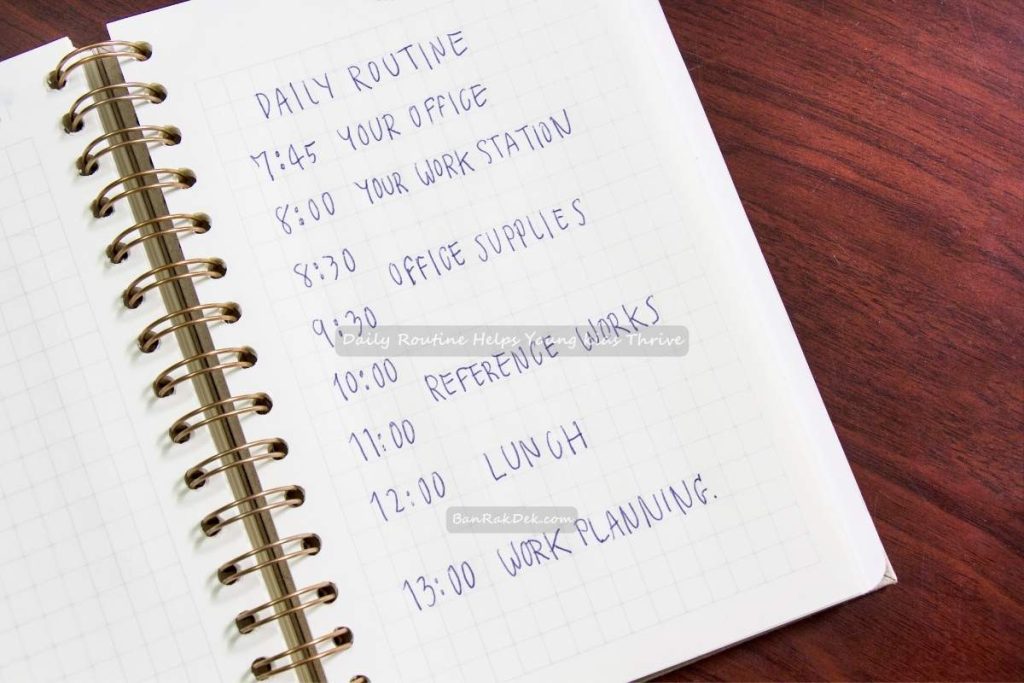 DAILY ROUTINE
7:45 YOUR OFFICE
8:00 YOUR WORK STATION
8:30 OFFICE SUPPLIES
9:30
Daily Routine Helps Young Kids Thrive
10:00 REFERENCE WORKS
11:00
12:00 LUNCH
BanRakDek.com
13:00 WORK PLANNING.